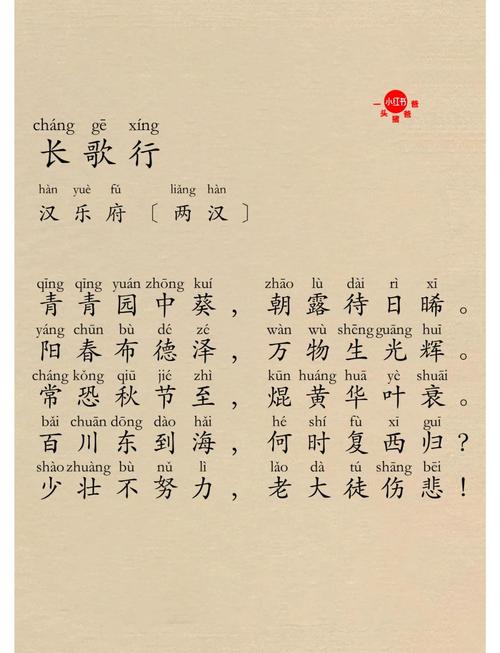 小红书
一头猪爸爸
cháng gē xíng
长歌行
hàn yuè fǔ liǎng hàn
汉乐府〔两汉〕
qīng qīng yuán zhōng kuí zhāo lù dài rì xī
青青园中葵，朝露待日晞。
yáng chūn bù dé zé wàn wù shēng guāng huī
阳春布德泽，万物生光辉。
cháng kǒng qiū jié zhì kūn huáng huā yè shuāi
常恐秋节至，焜黄华叶衰。
bǎi chuān dōng dào hǎi hé shí fù xī guí
百川东到海，何时复西归？
shào zhuàng bù nǔ lì lǎo dà tú shāng bēi
少壮不努力，老大徒伤悲！